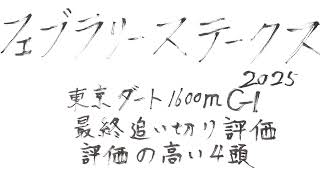 フェブラリーステークス
2025
東京ダート1600m GI
最終追い切り評価
評価の高い4頭